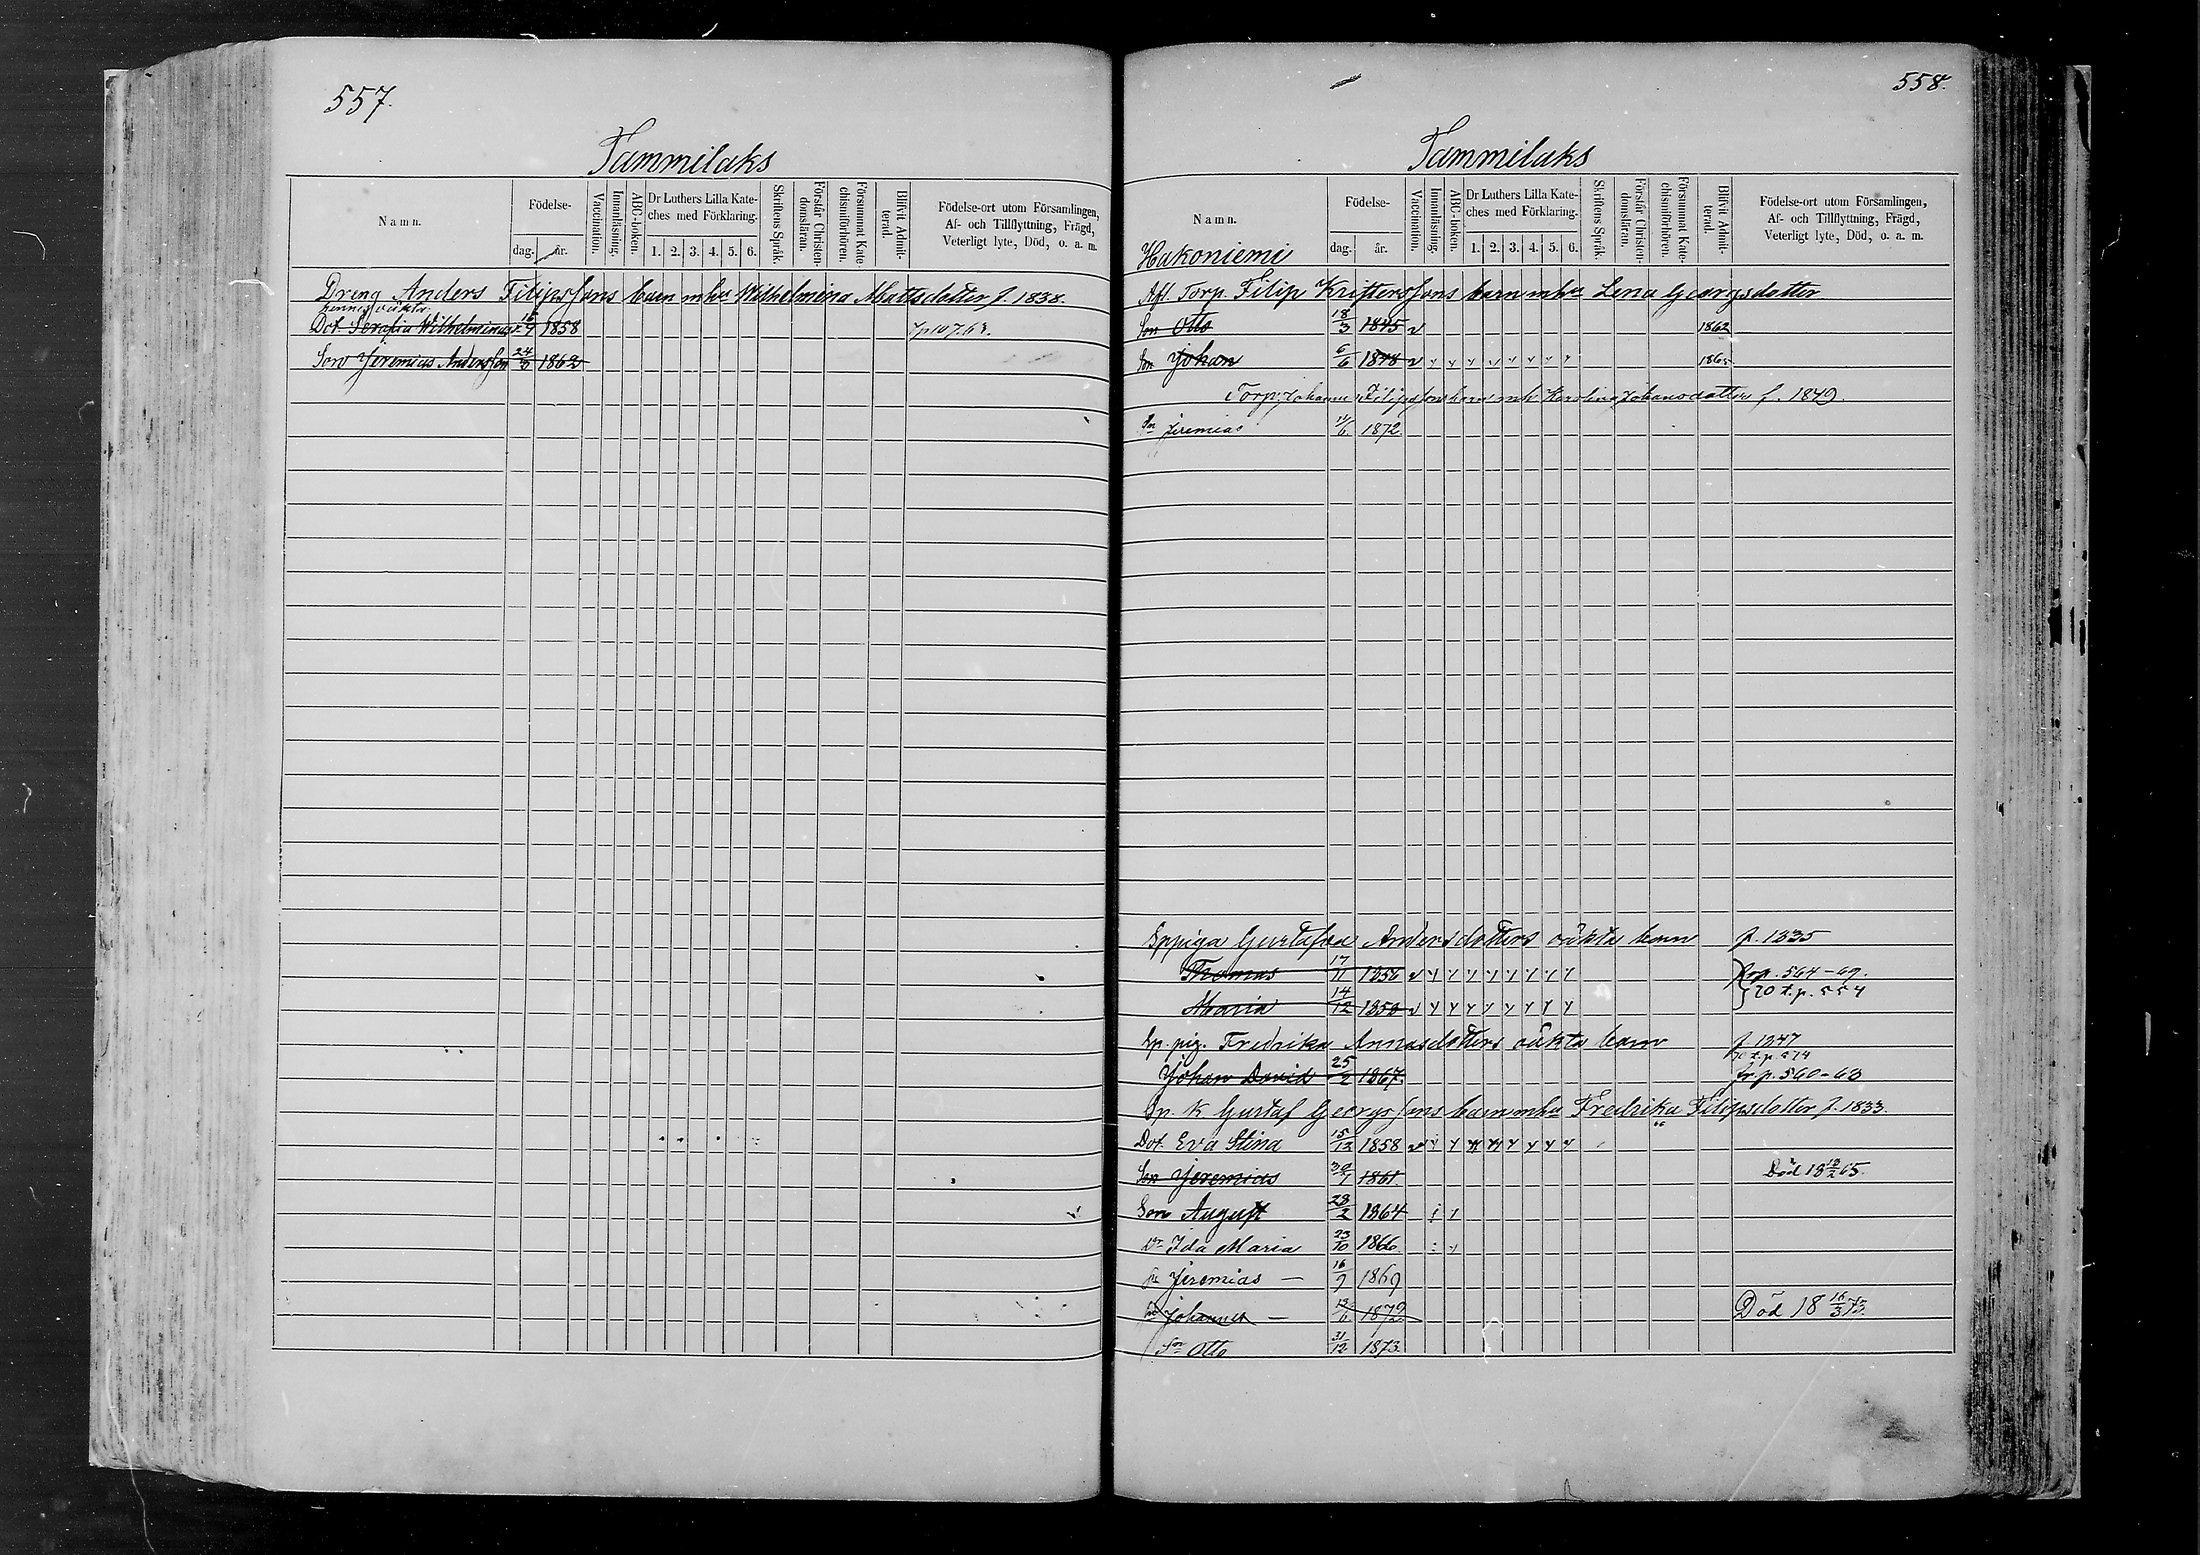 557.
Tammilaks
Namn.
Födelse-
dag.
år.
Vaccination.
Innanläsning.
ABC-boken.
Dr Luthers Lilla Kate-
ches med Förklaring.
1. 2. 3. 4. 5. 6.
Skriftens Språk.
Förstår Christen-
domsläran.
Försummat Kate-
chismiförhören.
Blifvit Admit-
terad.
Födelse-ort utom Församlingen,
Af- och Tillflyttning, Frägd,
Veterligt lyte, Död, o. a. m.
Dreng Anders Filipssons barn mhu Wilhelmina Mattsdotter f. 1838.
hennes oäkta
Dot. Serafia Wilhelmina 1858
Son Jeremias Andersson 24/3 1862
558.
Tammilaks
Namn.
Födelse-
dag.
år.
Vaccination.
Innanläsning.
ABC-boken.
Dr Luthers Lilla Kate-
ches med Förklaring.
1. 2. 3. 4. 5. 6.
Skriftens Språk.
Förstår Christen-
domsläran.
Försummat Kate-
chismiförhören.
Blifvit Admit-
terad.
Födelse-ort utom Församlingen,
Af- och Tillflyttning, Frägd,
Veterligt lyte, Död, o. a. m.
Hukoniemi
Afl. Torp. Filip Kristerssons barn mhu Lena Georgsdotter
Son Otto 18/3 1845 1862
Son Johan 6/6 1848 1865
Torp. Johannes Filipssons barn mh Karolina Johansdotter f. 1849.
Sn Jeremias 1872
Ippiga Gustafva Andersdotters oäkta barn f. 1835
Thomas 17/11 1856 fr p. 564-69.
Maria 14/12 1850 70 t. p. 554
Ip. pig. Fredrika Annasdotters oäkta barn f. 1847
70 t. p. 574
Johan David 25/2 1867 fr p. 560-68
Ip. k Gustaf Georgssons barn mhu Fredrika Filipsdotter f. 1833.
Dot. Eva Stina 15/12 1858
Son Jeremias 30/1 1861. Död 18 65.
Son August 28/2 1864
Dr Ida Maria 23/10 1866
Sn Jeremias — 16/9 1869
Sn Johannes — 1872 Död 18 16/3 73.
Sn Otto 31/12 1873